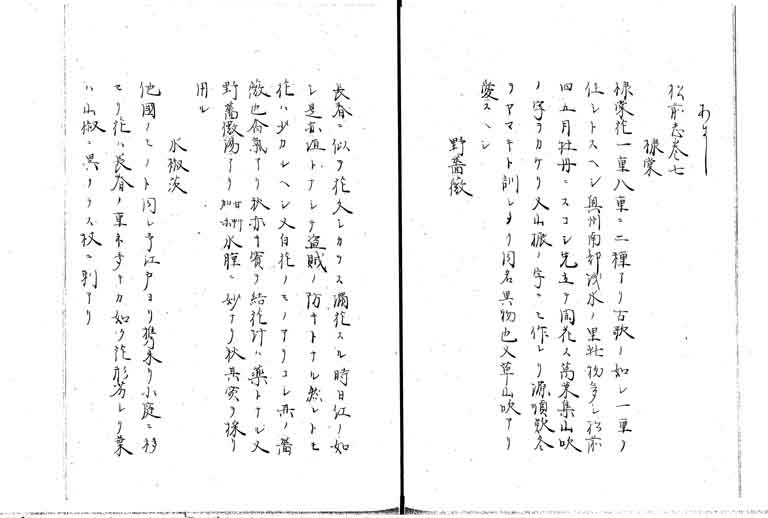 松前志巻七
棣棠
棣棠花一重八重ニ二種アリ古歌ノ如シ一重ノ
佳シトスヘシ奥州南部浅水ノ里此物多シ松前
四五月牡丹ニスコシ先立テ開花ス萬葉集山吹
ノ字ヲカケリ又山振ノ字ニモ作レリ源順款冬
ヲヤマブキト訓シタリ同名異物也又草山吹アリ
愛スヘシ
野薔薇
長春ニ似タ花久シカラス満花スル時日紅ノ如
シ是亦垣トナシテ盗賊ノ防キトナル然レトモ
花ハ少カルヘシ又白花ノモノアリコレ亦ノ薔
薇也香氣アリ秋赤キ實ヲ結花汁ハ藥トナル又
野薔薇湯アリ 水腫ニ妙ナリ秋其實ヲ採リ
用ル
水椒茨
他國ノモノト同シ予江戸ヨリ携来リ小庭ニ移
セリ花ハ長春ノ重ネ多キカ如ク花形劣レリ葉
ハ山椒ニ異ナラス枝ニ刺アリ